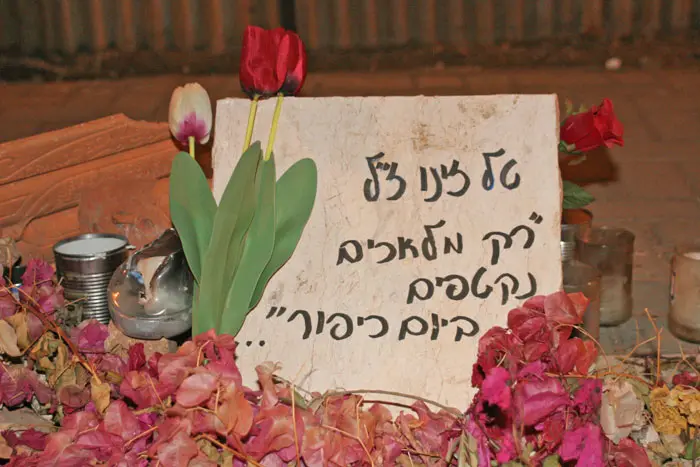 טל זינו ז"ל
"רק מלאכים
נקטפים
ביום כיפור"...